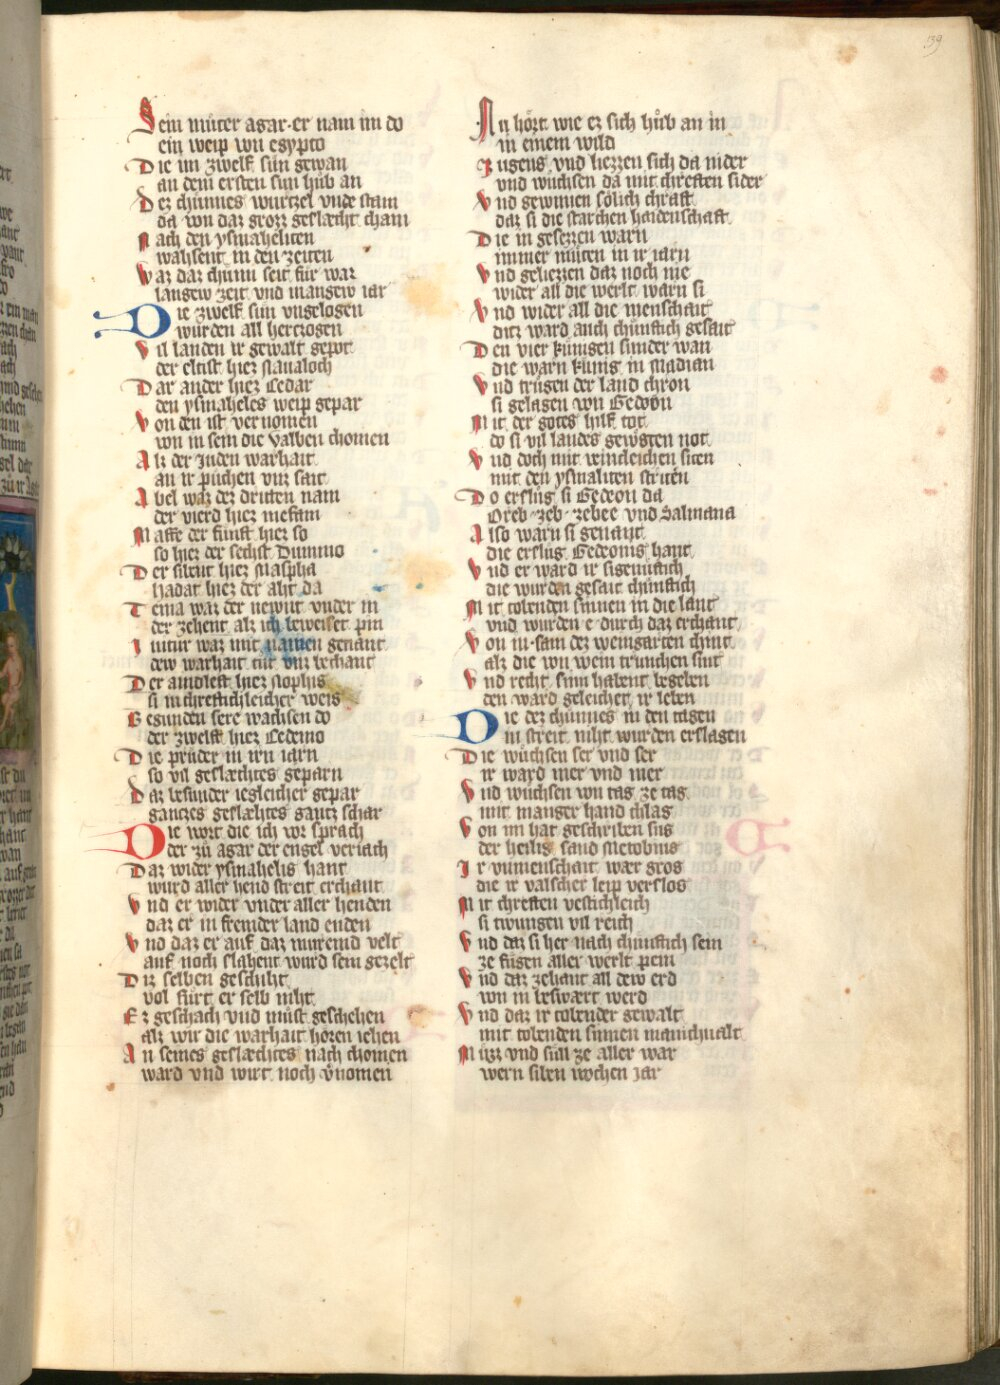 39
Sein muter agar er nam im do
ein weip von egypto
Die im zwelf sun gewan
an dem ersten sun huͦb an
Dez chunnes wurtzel vnde stam
da von daz grozz geslæcht cham
Nach den ysmaheliten
wahsent in den zeiten
Waz daz chunn seit fur war
langew zeit vnd mangew iar
Die zwelf sun vngelogen
wurden all hertzogen
Vil landen ir gewalt gepot
der eltist hiez nauaioch
Dar ander hiez Cedar
den ysmaheles weip gepar
Von den ist vernomen
von in sein die valben chomen
Alz der Juden warhait
an ir puchen vnz sait
Abel waz dez dritten nam
der vierd hiez mesam
Masse der funft hiez so
so hiez der sechst Dummo
Der sibent hiez maspha
hadat hiez der aht da
Tema waz der newnt vnder in
der zehent alz ich beweiset pin
Iutur waz mit namen genant
dew warhait tut vnz bechant
Der aindleft hiez naphis
si in chreftichleicher weis
Begunden sere wachsen do
der zwelft hiez Cedemo
Die pruder in irn iarn
so vil geslæchtes geparn
Daz besunder iegleicher gepar
ganczes geslæchtes gantz schar
Die wort die ich vor sprach
der zuͦ agar der engel veriach
Daz wider ysmahelis hant
wurd aller hend streit erchant
Vnd er wider vnder aller henden
daz er in fremder land enden
Vnd daz er auf daz wuremd velt
auf noch slahent wurd sein gezelt
Diz selben geschiht
vol furt er selb niht
Ez geschach vnd must geschehen
alz wir die warhait horen iehen
An seines geslæchtes nach chomen
ward vnd wirt noch vernomen
Nu hort wie ez sich huͦb an in
in einem wild
Zugens vnd liezzen sich da nider
vnd wuchsen da mit chreften sider
Vnd gewunnen solich chraft
daz si die starchen haidenschaft
Die in gesezzen warn
immer muten in ir iarn
Vnd geliezzen daz noch nie
wider all die werlt warn si
Vnd wider all die menschait
ditz ward auch chunftich gesait
Den vier kunigen sunder wan
die warn kunig in madian
Vnd trugen der land chron
si gelagen von Gedeon
Mit der gotes hilf tot
do si vil landes gewsten not
Vnd doch mit veindleichen siten
mit den ysmaliten striten
Do erslug si Gedeon da
Oreb zeb zebee vnd Salmana
Also warn si genant
die erslug Gedeonis hant
Vnd er ward ir sigenuftich
die wurden gesait chunftich
Mit tobenden sinnen in die lant
vnd wurden e durch daz erchant
Von in sam dez weingarten chint
alz die von wein trunchen sint
Vnd recht sinn habent begeben
den ward geleichet ir leben
Die dez chunnes in den tagen
in streit niht wurden erslagen
Die wuchsen ser vnd ser
ir ward mer vnd mer
Vnd wuchsen von tag ze tag
mit manger hand chlag
Von im hat geschriben sus
der heilig sand metodius
Ir vnmenschait waz gros
die ir valscher leip verslos
Mit chreften vestichleich
si twungen vil reich
Vnd daz si her nach chunftich sein
ze fugen aller werlt pein
Vnd daz zehant all dew erd
von in beswært werd
Vnd daz ir tobender gewalt
mit tobenden sinnen manichualt
Muzz vnd sull ze aller war
wern siben wochen iar